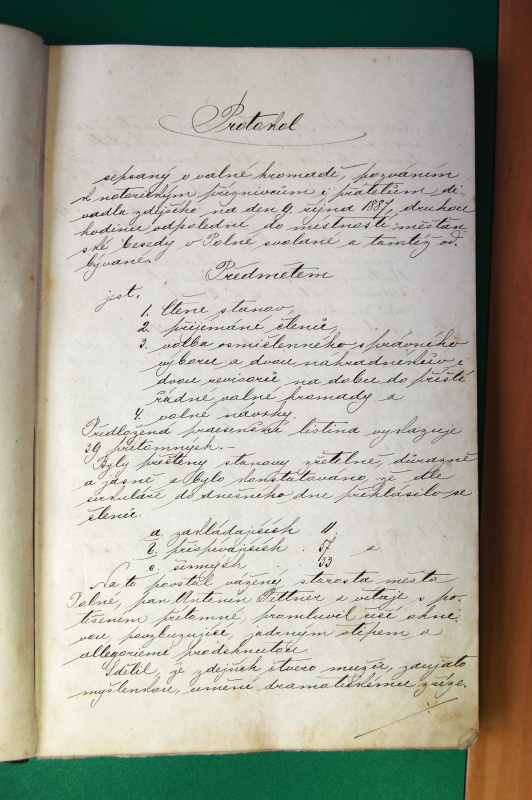 Protokol
sepsaný o valné hromadě, pozváním
k notorickým příznivcům i přátelům di-
vadla zdejšího na den 9. října 1887, druhou
hodinu odpoledne do místnosti měšťan-
ské besedy v Polné svolané a tamtéž od-
bývané.
Předmětem
jest.
1. Čtení stanov,
2. přijemání členů,
3. volba osmičlenného správného
výboru a dvou náhradníkův i
dvou revisorů na dobu do příště
řádné valné hromady a
4. volné návrhy.
Předložená praesenční listina vykazuje
39 přítomných.-
Byly přečteny stanovy zřetelně, důrazně
a jasně a bylo konstatováno že dle
cirkuláře do dnešního dne přihlásilo se
členů:
a. zakládajících 11.
b. přispívajících . 57 a
c. činných 33
Na to povstal vážený starosta města
Polné, pan Antonín Pittner a vítaje s po-
těšením přítomné, promluvil řečí ohni-
vou, povzbuzující, jadrným vtipem a
allegoriemi prodchnutou.
Sdělil, že zdejších čtvero mužů, zaujato
myšlenkou, umění dramatickému zříze-